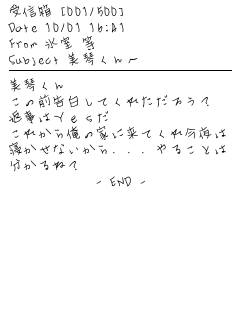 受信箱 [001/500]
Date 10/01 16:21
From 氷室 等
Subject 美琴くん~
美琴くん
この前告白してくれただろう?
返事はYesだ
これから俺の家に来てくれ今夜は
寝かせないから...やることは
分かるね?
- END -